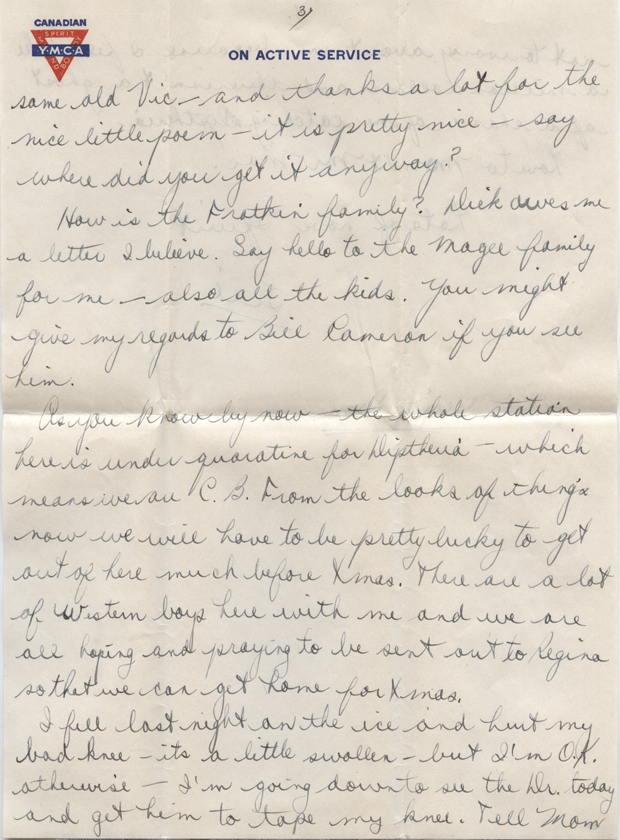 3/
CANADIAN
SPIRIT
MIND BODY
Y·M·C·A
ON ACTIVE SERVICE
same old Vic – and thanks a lot for the
nice little poem – it is pretty nice – say
where did you get it anyway?
How is the Fratkin family? Dick owes me
a letter I believe. Say hello to the Magee family
for me – also all the kids. You might
give my regards to Bill Cameron if you see
him.
As you know by now – the whole station
here is under quaratine for Diptheria – which
means we are C.B. From the looks of things
now we will have to be pretty lucky to get
out of here much before Xmas. There are a lot
of Western boys here with me and we are
all hoping and praying to be sent out to Regina
so that we can get home for Xmas.
I fell last night on the ice and hurt my
bad knee – its a little swollen – but I'm O.K.
otherwise – I'm going down to see the Dr. today
and get him to tape my knee. Tell Mom